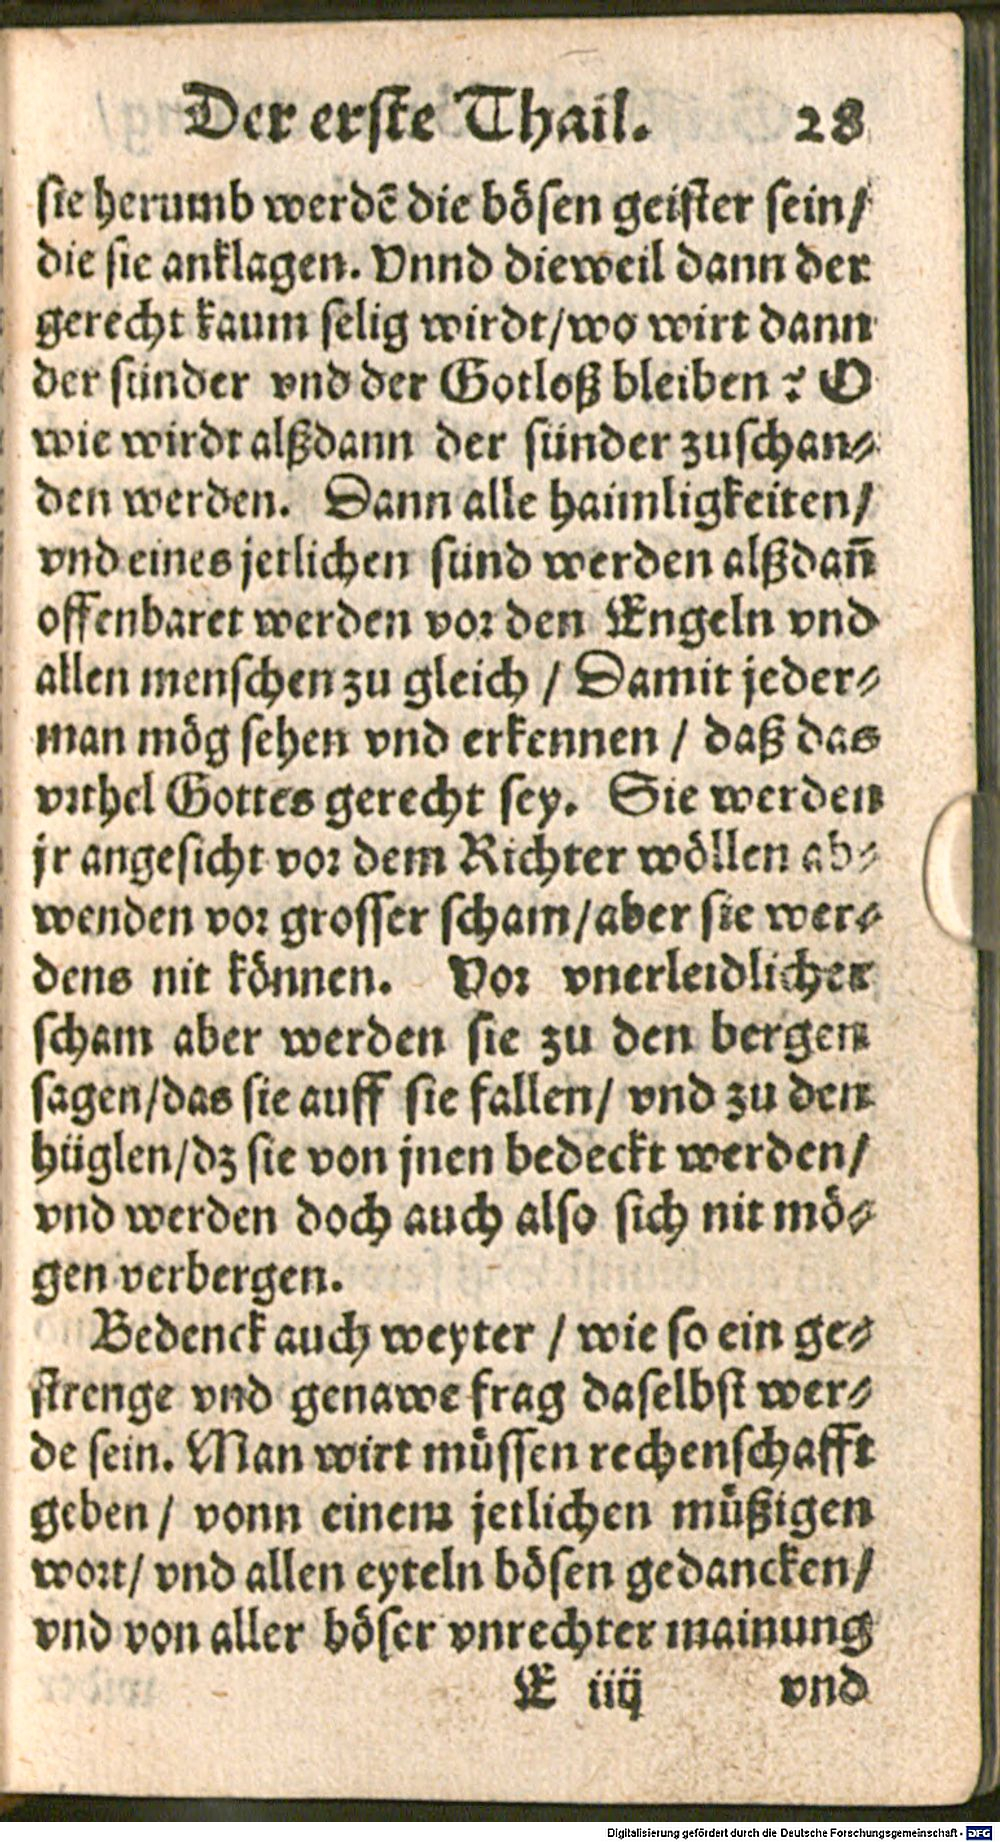 Der erste Thail. 28
sie herumb werdẽ die bösen geister sein/
die sie anklagen. Vnnd dieweil dann der
gerecht kaum selig wirdt/wo wirt dann
der sünder vnd der Gotloß bleiben? O
wie wirdt alßdann der sünder zuschan-
den werden. Dann alle haimligkeiten/
vnd eines jetlichen sünd werden alßdañ
offenbaret werden vor den Engeln vnd
allen menschen zu gleich / Damit jeder-
man mög sehen vnd erkennen / daß das
vrthel Gottes gerecht sey. Sie werden
jr angesicht vor dem Richter wöllen ab-
wenden vor grosser scham/aber sie wer-
dens nit können. Vor vnerleidlicher
scham aber werden sie zu den bergen
sagen/das sie auff sie fallen/ vnd zu den
hüglen/dz sie von jnen bedeckt werden/
vnd werden doch auch also sich nit mö-
gen verbergen.
Bedenck auch weyter / wie so ein ge-
strenge vnd genawe frag daselbst wer-
de sein. Man wirt müssen rechenschafft
geben/ vonn einem jetlichen müßigen
wort/ vnd allen eyteln bösen gedancken/
vnd von aller böser vnrechter mainung
E iiij vnd
Digitalisierung gefördert durch die Deutsche Forschungsgemeinschaft - DFG